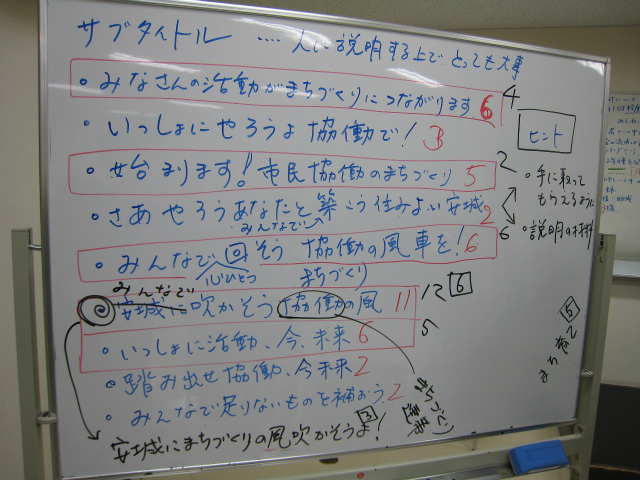 サブタイトル ‥‥ 人に説明する上でとっても大事
・みなさんの活動がまちづくりにつながります 6 4
・いっしょにやろうよ協働で! 3
ヒント
・始まります!市民協働のまちづくり 5 2
・手に取ってもらえるように
・さあやろうあなたと築こう住みよい安城 2
みんなで
・説明の材料
・みんなで回そう 協働の風車を! 6 6
心ひとつ まちづくり
みんなで
安城に吹かそう協働の風 11 12 6
・いっしょに活動、今、未来 6 5
・踏み出せ協働、今未来 2
・みんなで足りないものを補おう 2
安城にまちづくりの風吹かそうよ! 3
まちづくり
5
まち育て